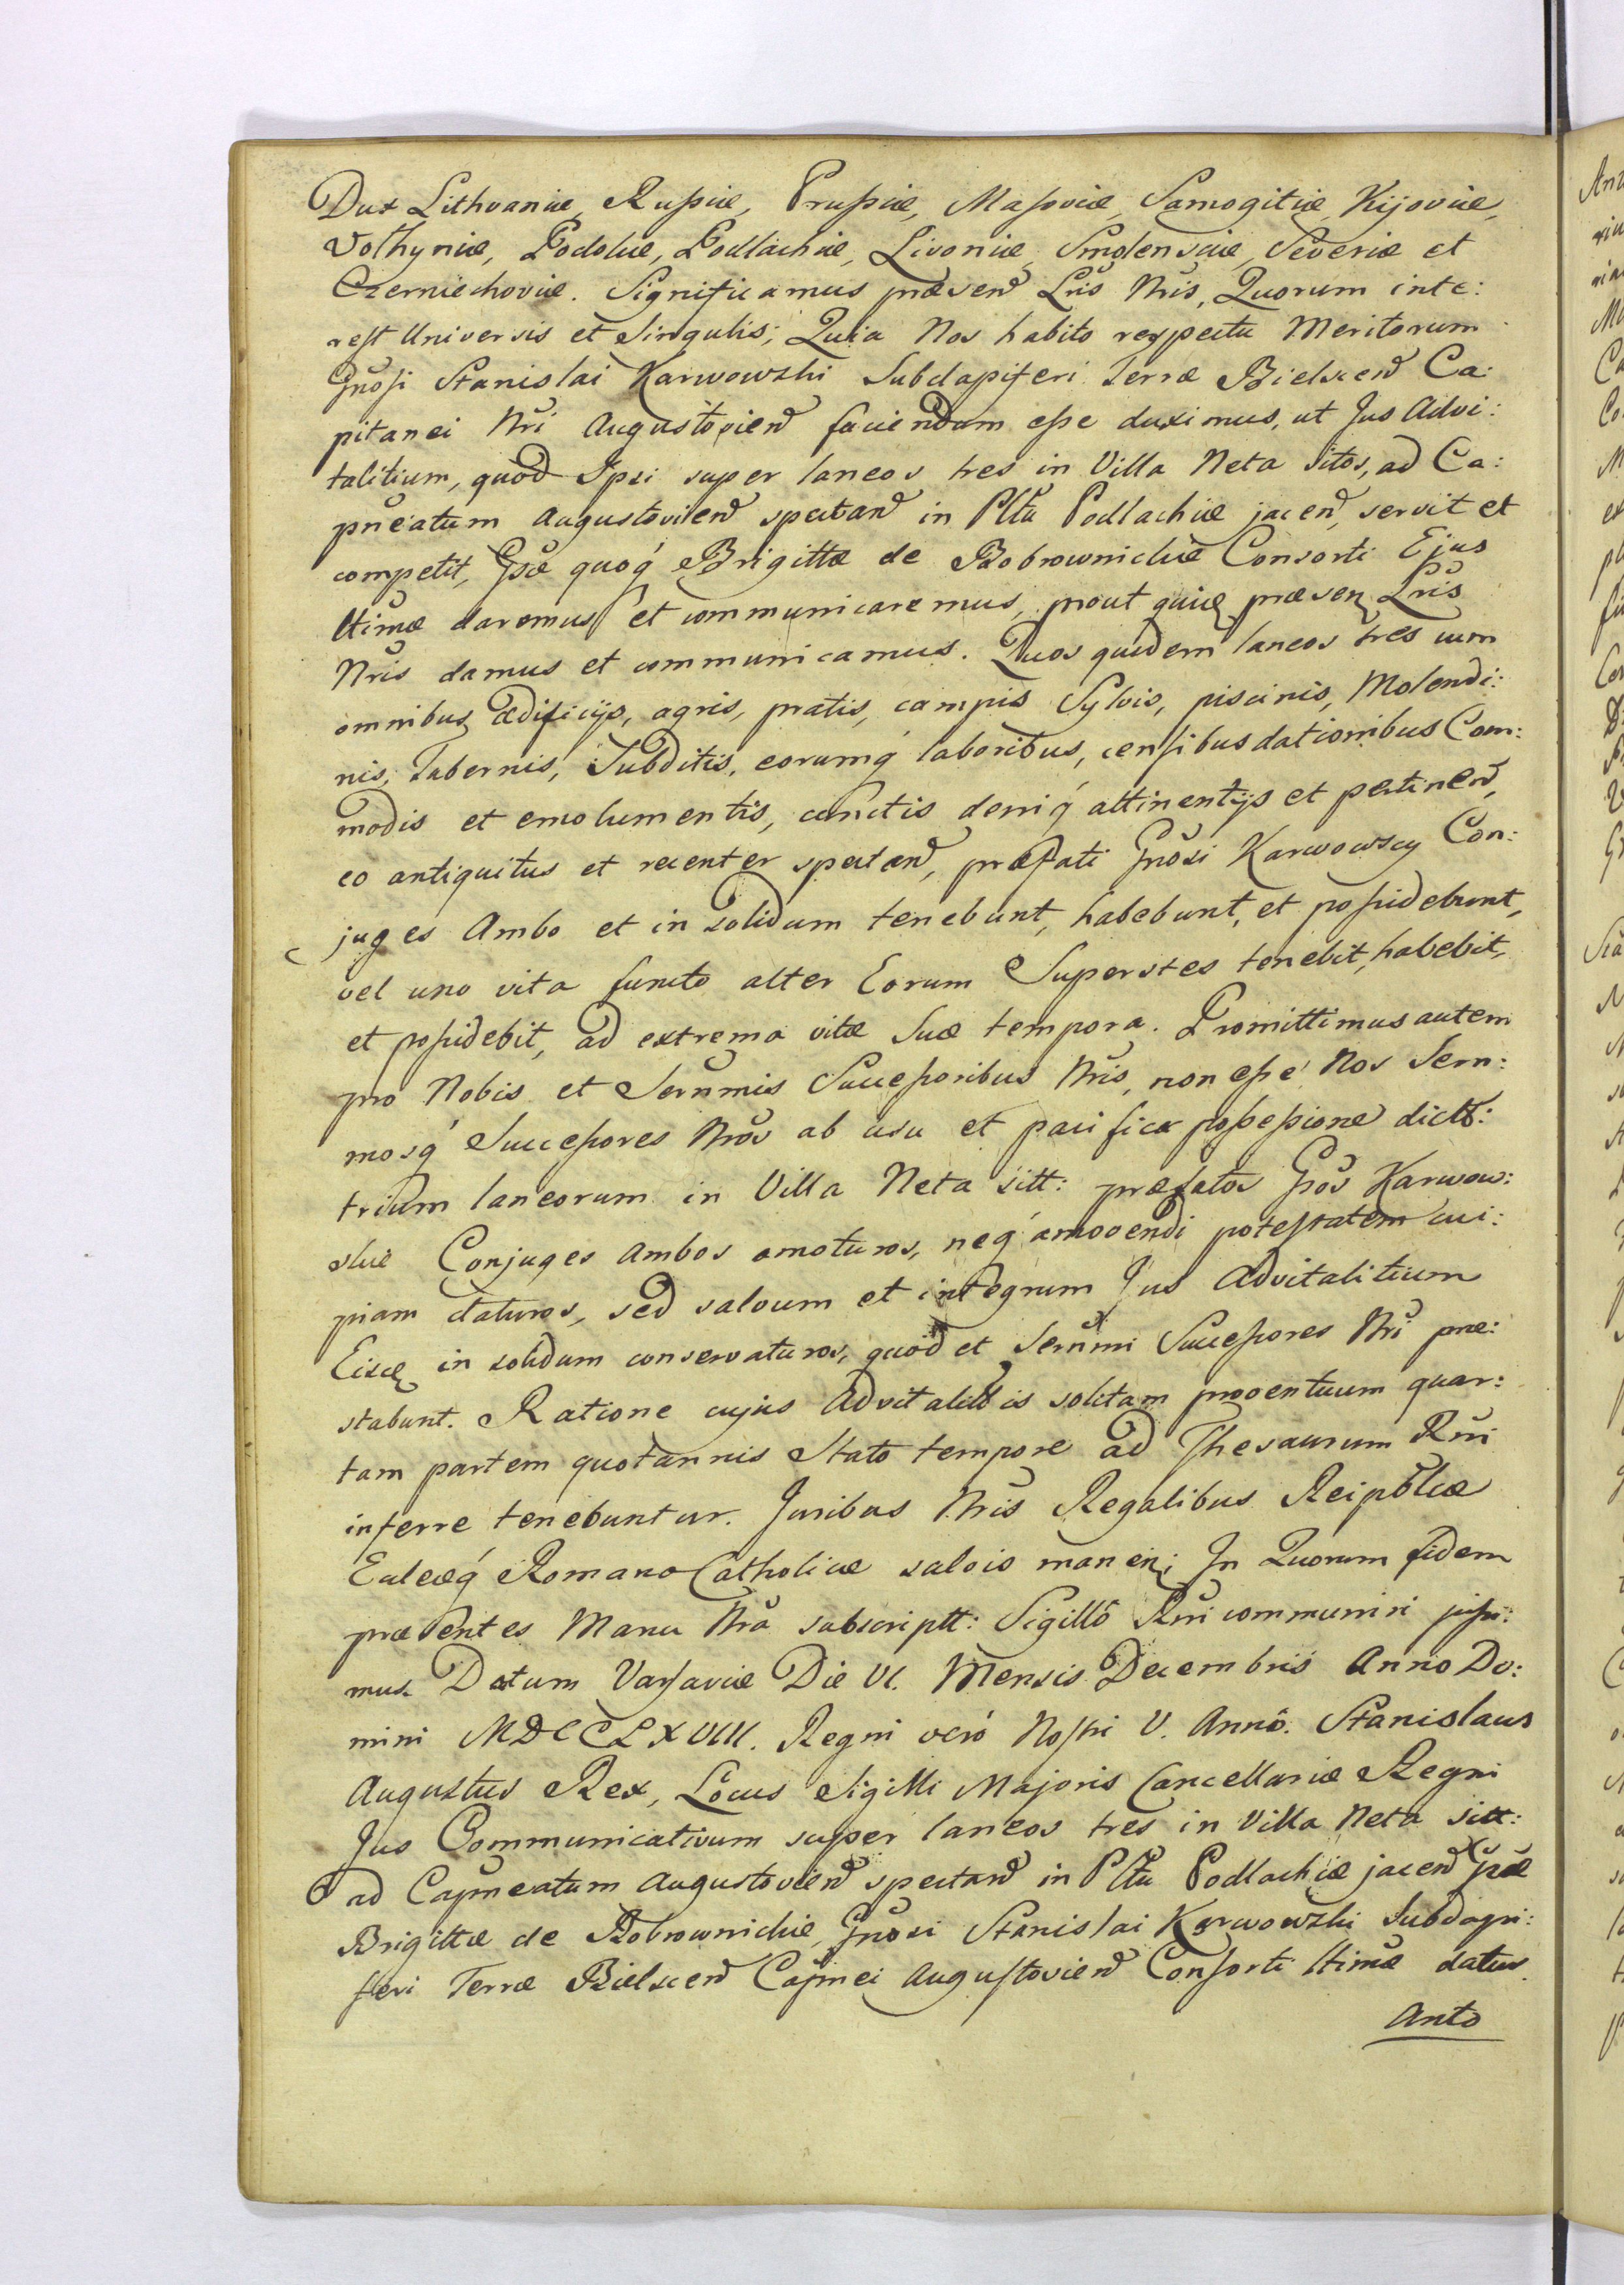 Dux Lithvaniæ, Rußiæ, Prußiæ, Maſoviæ, Samogitiæ, Kijoviæ,
Volhyniæ, Podoliæ, Podlachiæ, Livoniæ, Smolensciæ, Severiæ et
Czerniechoviæ. Significamus præsend Lris Nris, Quorum inte:
reſt Universis et Singulis; Quia Nos habito respectu Meritorum
Gnoſi Stanislai Karwowski Subdapiferi Terræ Bielscend Ca:
pitanei Nri Augustoviend faciendum eſse duximus, ut Jus Advi:
talitium, quod Ipsi super laneos tres in Villa Neta sitos, ad Ca:
pneatum Augustoviend spectand in Pltu Podlachiæ jacend, servit et
competit, Gsæ quoq́ Brigittæ de Bobrownickie Consorti Ejus
ltimæ daremus et communicaremus, prout quidę præsen Lris
Nris damus et communicamus. Quos quidem laneos tres cum
omnibus ædificijs, agris, pratis, campis Sylvis, piscinis, Molendi:
nis, Tabernis, Subditis, eorumq́ laboribus, cenſibus dationibus Com:
modis et emolumentis, cunctis deniq́ attinentijs et pertinend,
eo antiquitus et recenter spectand, præfati Gnosi Karwowscy Con:
juges Ambo et in solidum tenebunt, habebunt, et poſsidebunt,
vel uno vita functo alter Eorum Superstes tenebit, habebit,
et poſsidebit, ad extrema vitæ Suæ tempora. Promittimus autem
pro Nobis et Sernmis Succeſsoribus Nris, non eſse Nos Sern:
mosq́ Succeſsores Nros ab usu et pacifica poſseſsione dictt:
trium laneorum in Villa Neta sitt: præfatos Gnos Karwow:
skie Conjuges Ambos amoturos, neq́ amovendi poteſtatem cui:
piam daturos, sed salvum et integrum Jus Advitalitium
Eisdę in solidum conservaturos, quod et Sernmi Succeſsores Nri præ:
stabunt. Ratione cujus Advitalittis solitam proventuum quar:
tam partem quotannis Stato tempore ad Thesaurum Rni
inferre tenebuntur. Juribus Nris Regalibus Reipblcæ
Eccleæq́ Romano Catholicæ salvis manen; In Quorum fidem
præsentes Manu Nra subscriptt: Sigillô Rni communiri juſsi:
mus. Datum Varſaviæ Die VI. Mensis Decembris Anno Do:
mini MDCCLXVIII. Regni verò Noſtri V. Annô. Stanislaus
Augustus Rex, Locus Sigilli Majoris Cancellariæ Regni
Jus Communicativum super laneos tres in Villa Neta sitt:
ad Capneatum Augustoviend spectand in Pltu Podlachiæ jacend Gsæ
Brigittæ de Bobrownickie, Gnosi Stanislai Karwowski Subdapi:
feri Terræ Bielscend Capnei Auguſtoviend Conſorti ltimæ datur.
Anto